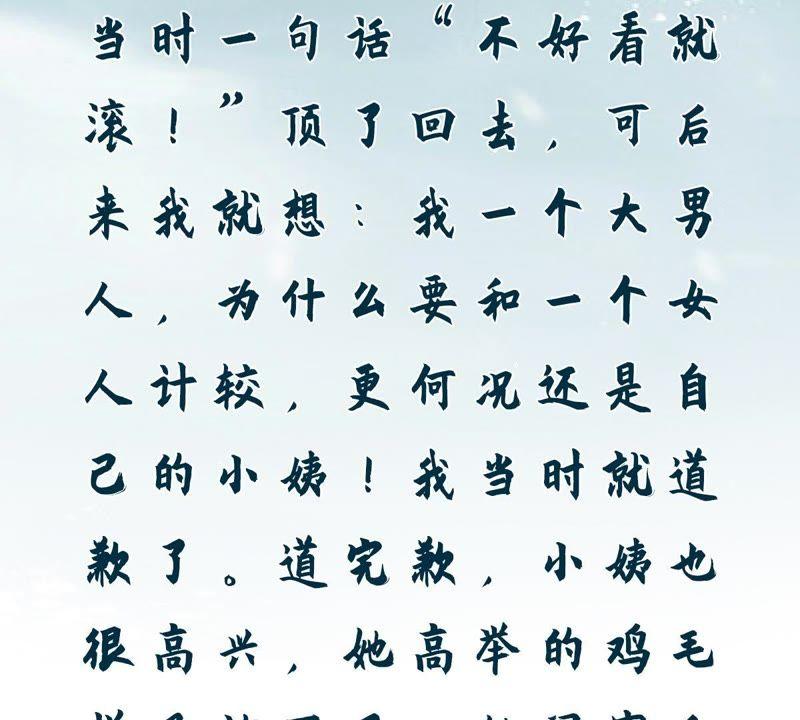 当时一句话“不好看就
滚！”顶了回去，可后
来我就想：我一个大男
人，为什么要和一个女
人计较，更何况还是自
己的小姨！我当时就道
歉了。道完歉，小姨也
很高兴，她高举的鸡毛